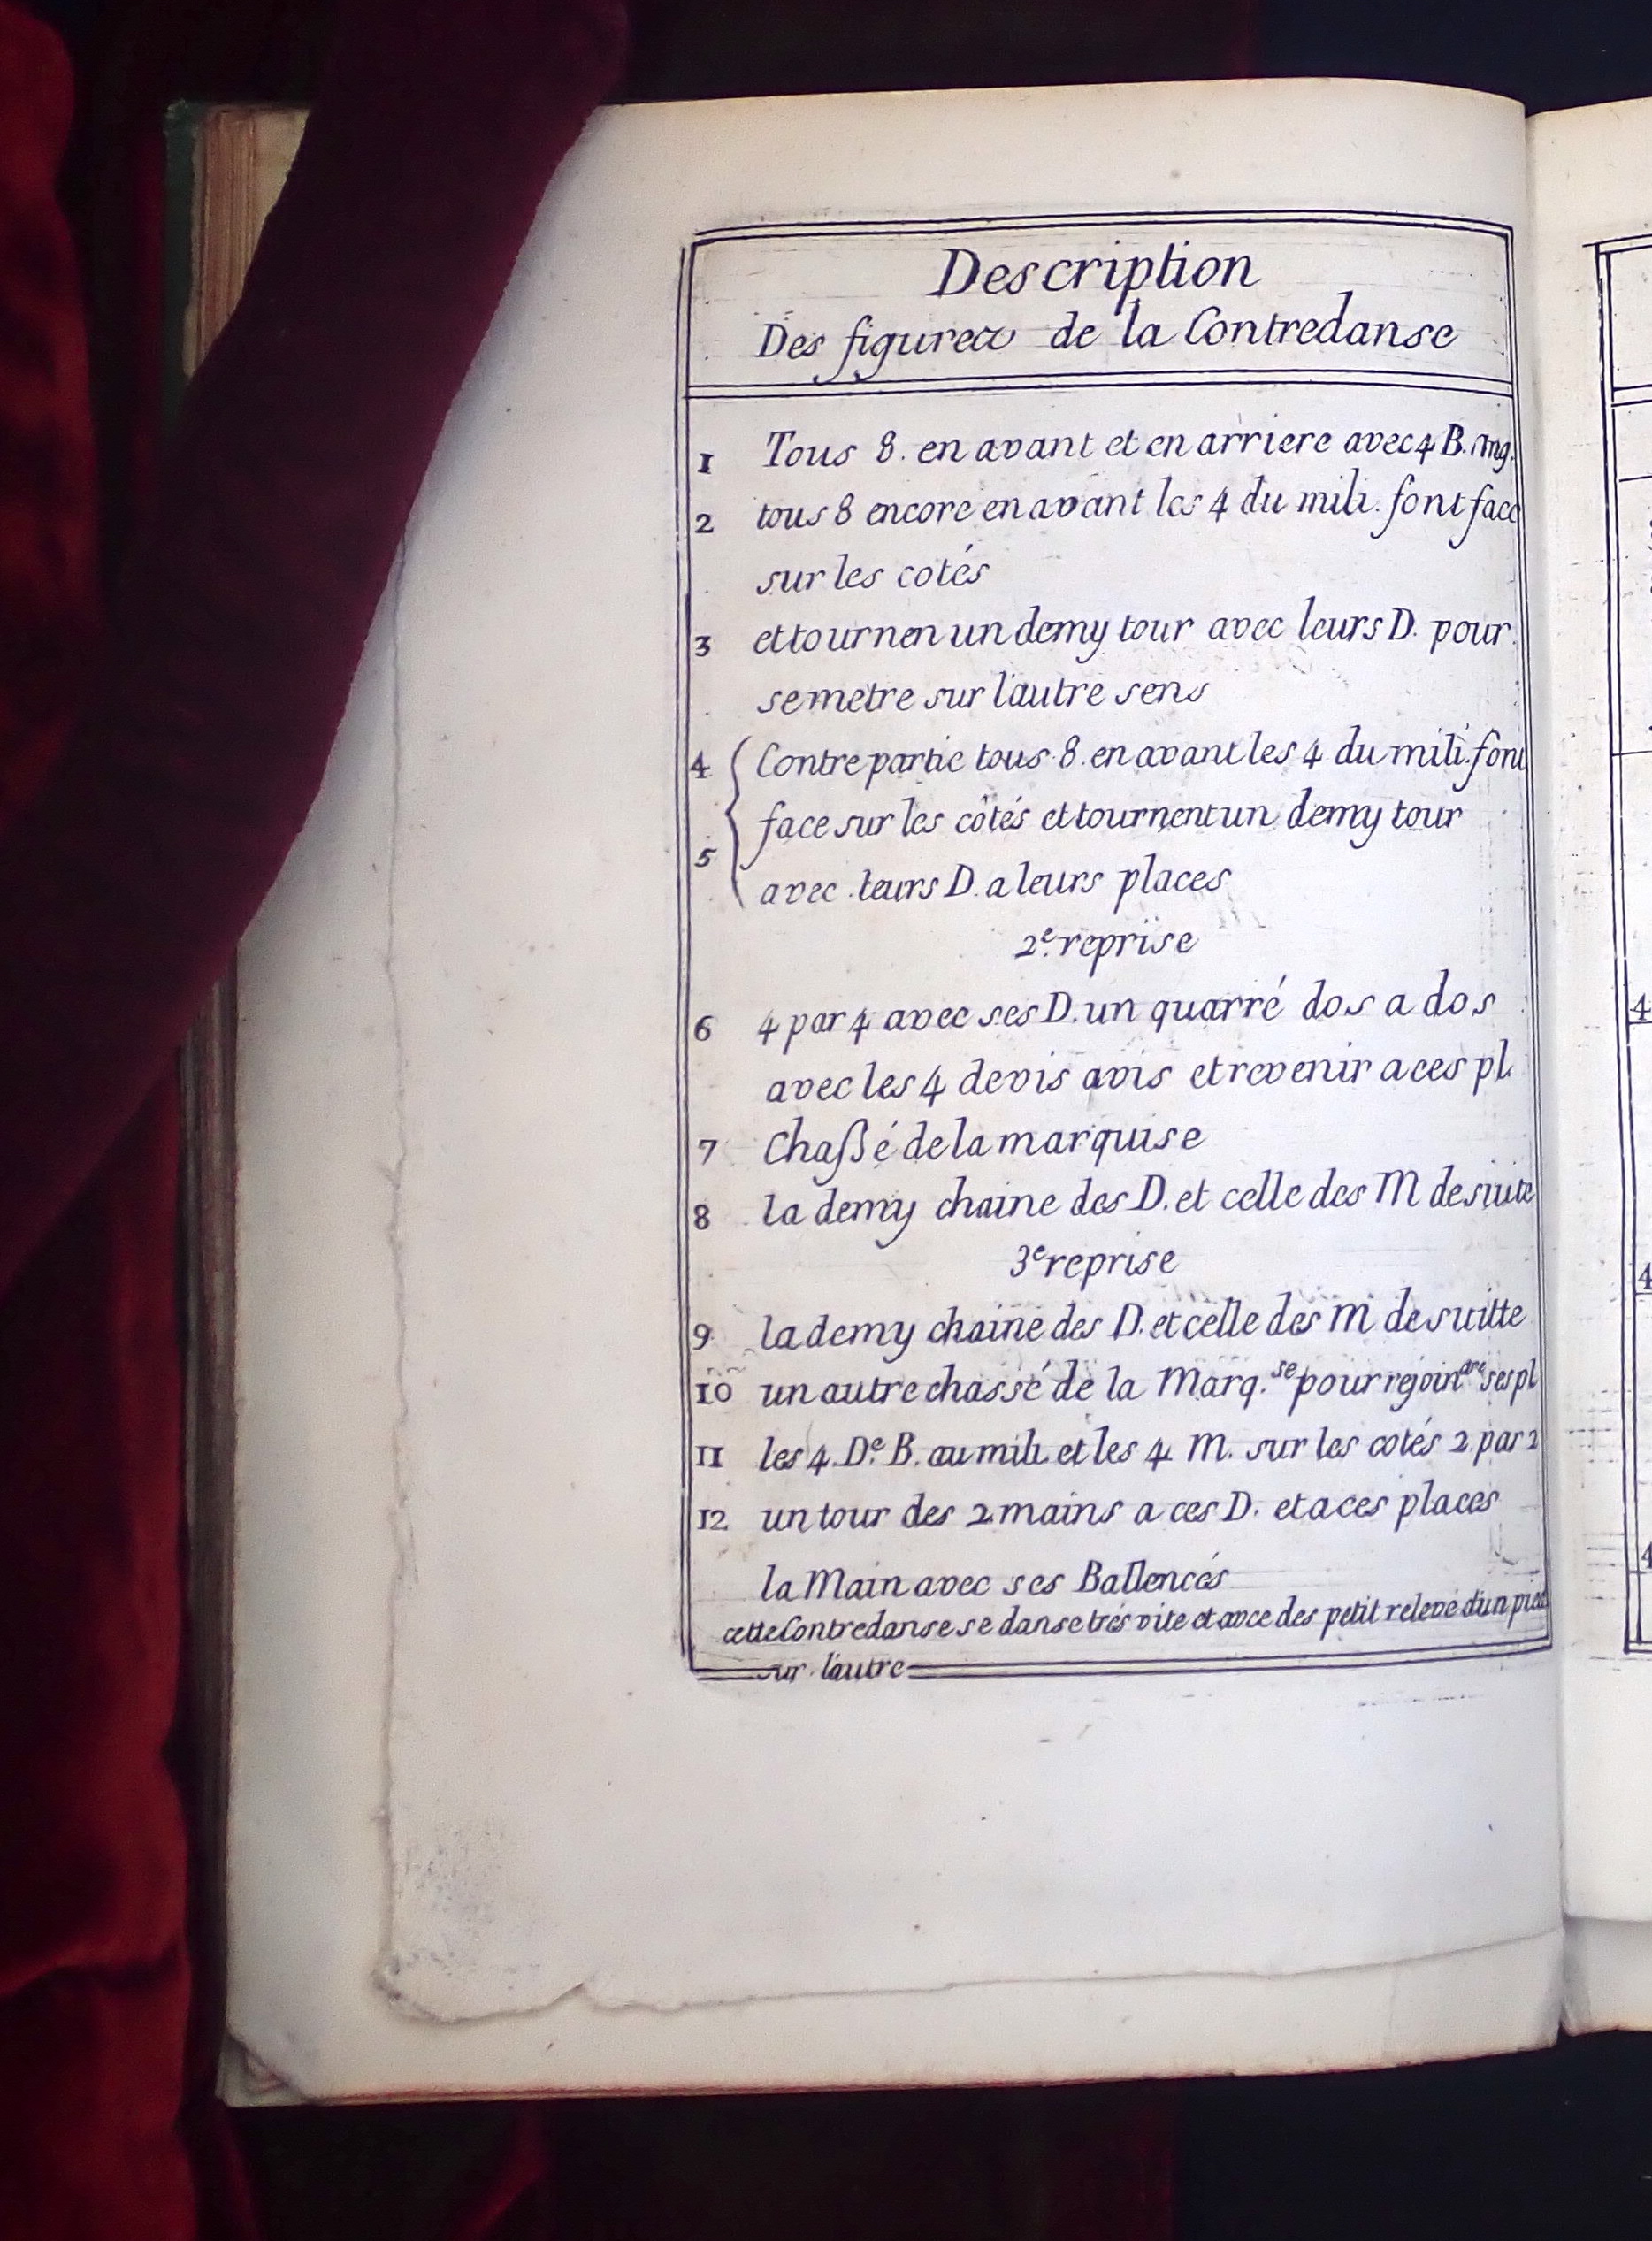 Description
Des figures de la Contredanse
1 Tous 8. en avant et en arriere avec 4 B. Ang.
2 tous 8 encore en avant les 4 du mili. font face
sur les cotés
3 et tournen un demy tour avec leurs D. pour
se metre sur l'autre sens
4 Contre partie tous 8. en avant les 4 du mili. font
face sur les côtés et tournent un demy tour
5
avec leurs D. a leurs places
2e. reprise
6 4 par 4 avec ses D. un quarré dos a dos
avec les 4 de vis avis et revenir a ces pl.
7 Chaßé de la marquise
8 la demy chaine des D. et celle des M de suite
3e reprise
9 la demy chaine des D. et celle des M de suitte
10 un autre chassé de la Marq.se pour rejoindre ses pl
11 les 4 De. B. au mili et les 4 M. sur les cotés 2 par 2
12 un tour des 2 mains a ces D. et a ces places
la Main avec ses Ballencés
cette Contredanse se danse trés vite et avce des petit relevé d'un pied
sur l'autre
4
4
4